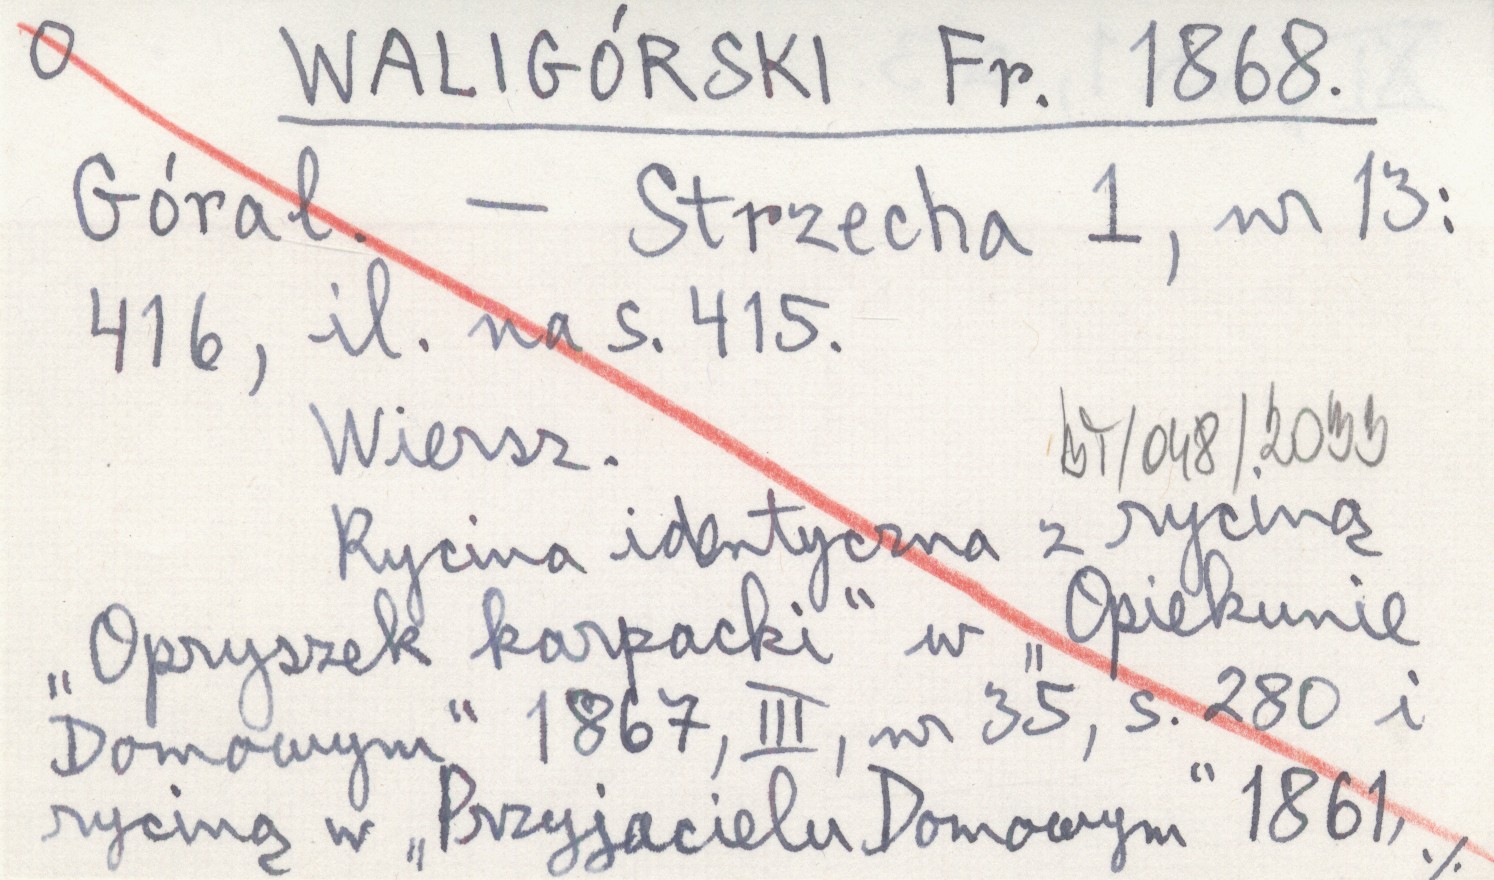 O WALIGÓRSKI Fr. 1868.
Góral. — Strzecha 1, nr 13:
416, il. na s. 415.
Wiersz.
BT/048/2033
Rycina identyczna z ryciną
„Opryszek karpacki" w „Opiekunie
Domowym" 1867, III, nr 35, s. 280 i
ryciną w „Przyjacielu Domowym" 1861,
./.